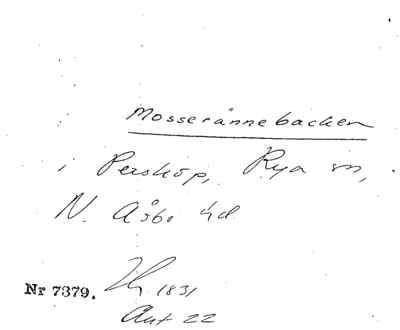 Mosserännebacken
i Perstorp, Rya sn,
N. Åsbo hd
Nr 7379. 1831
Akt 22